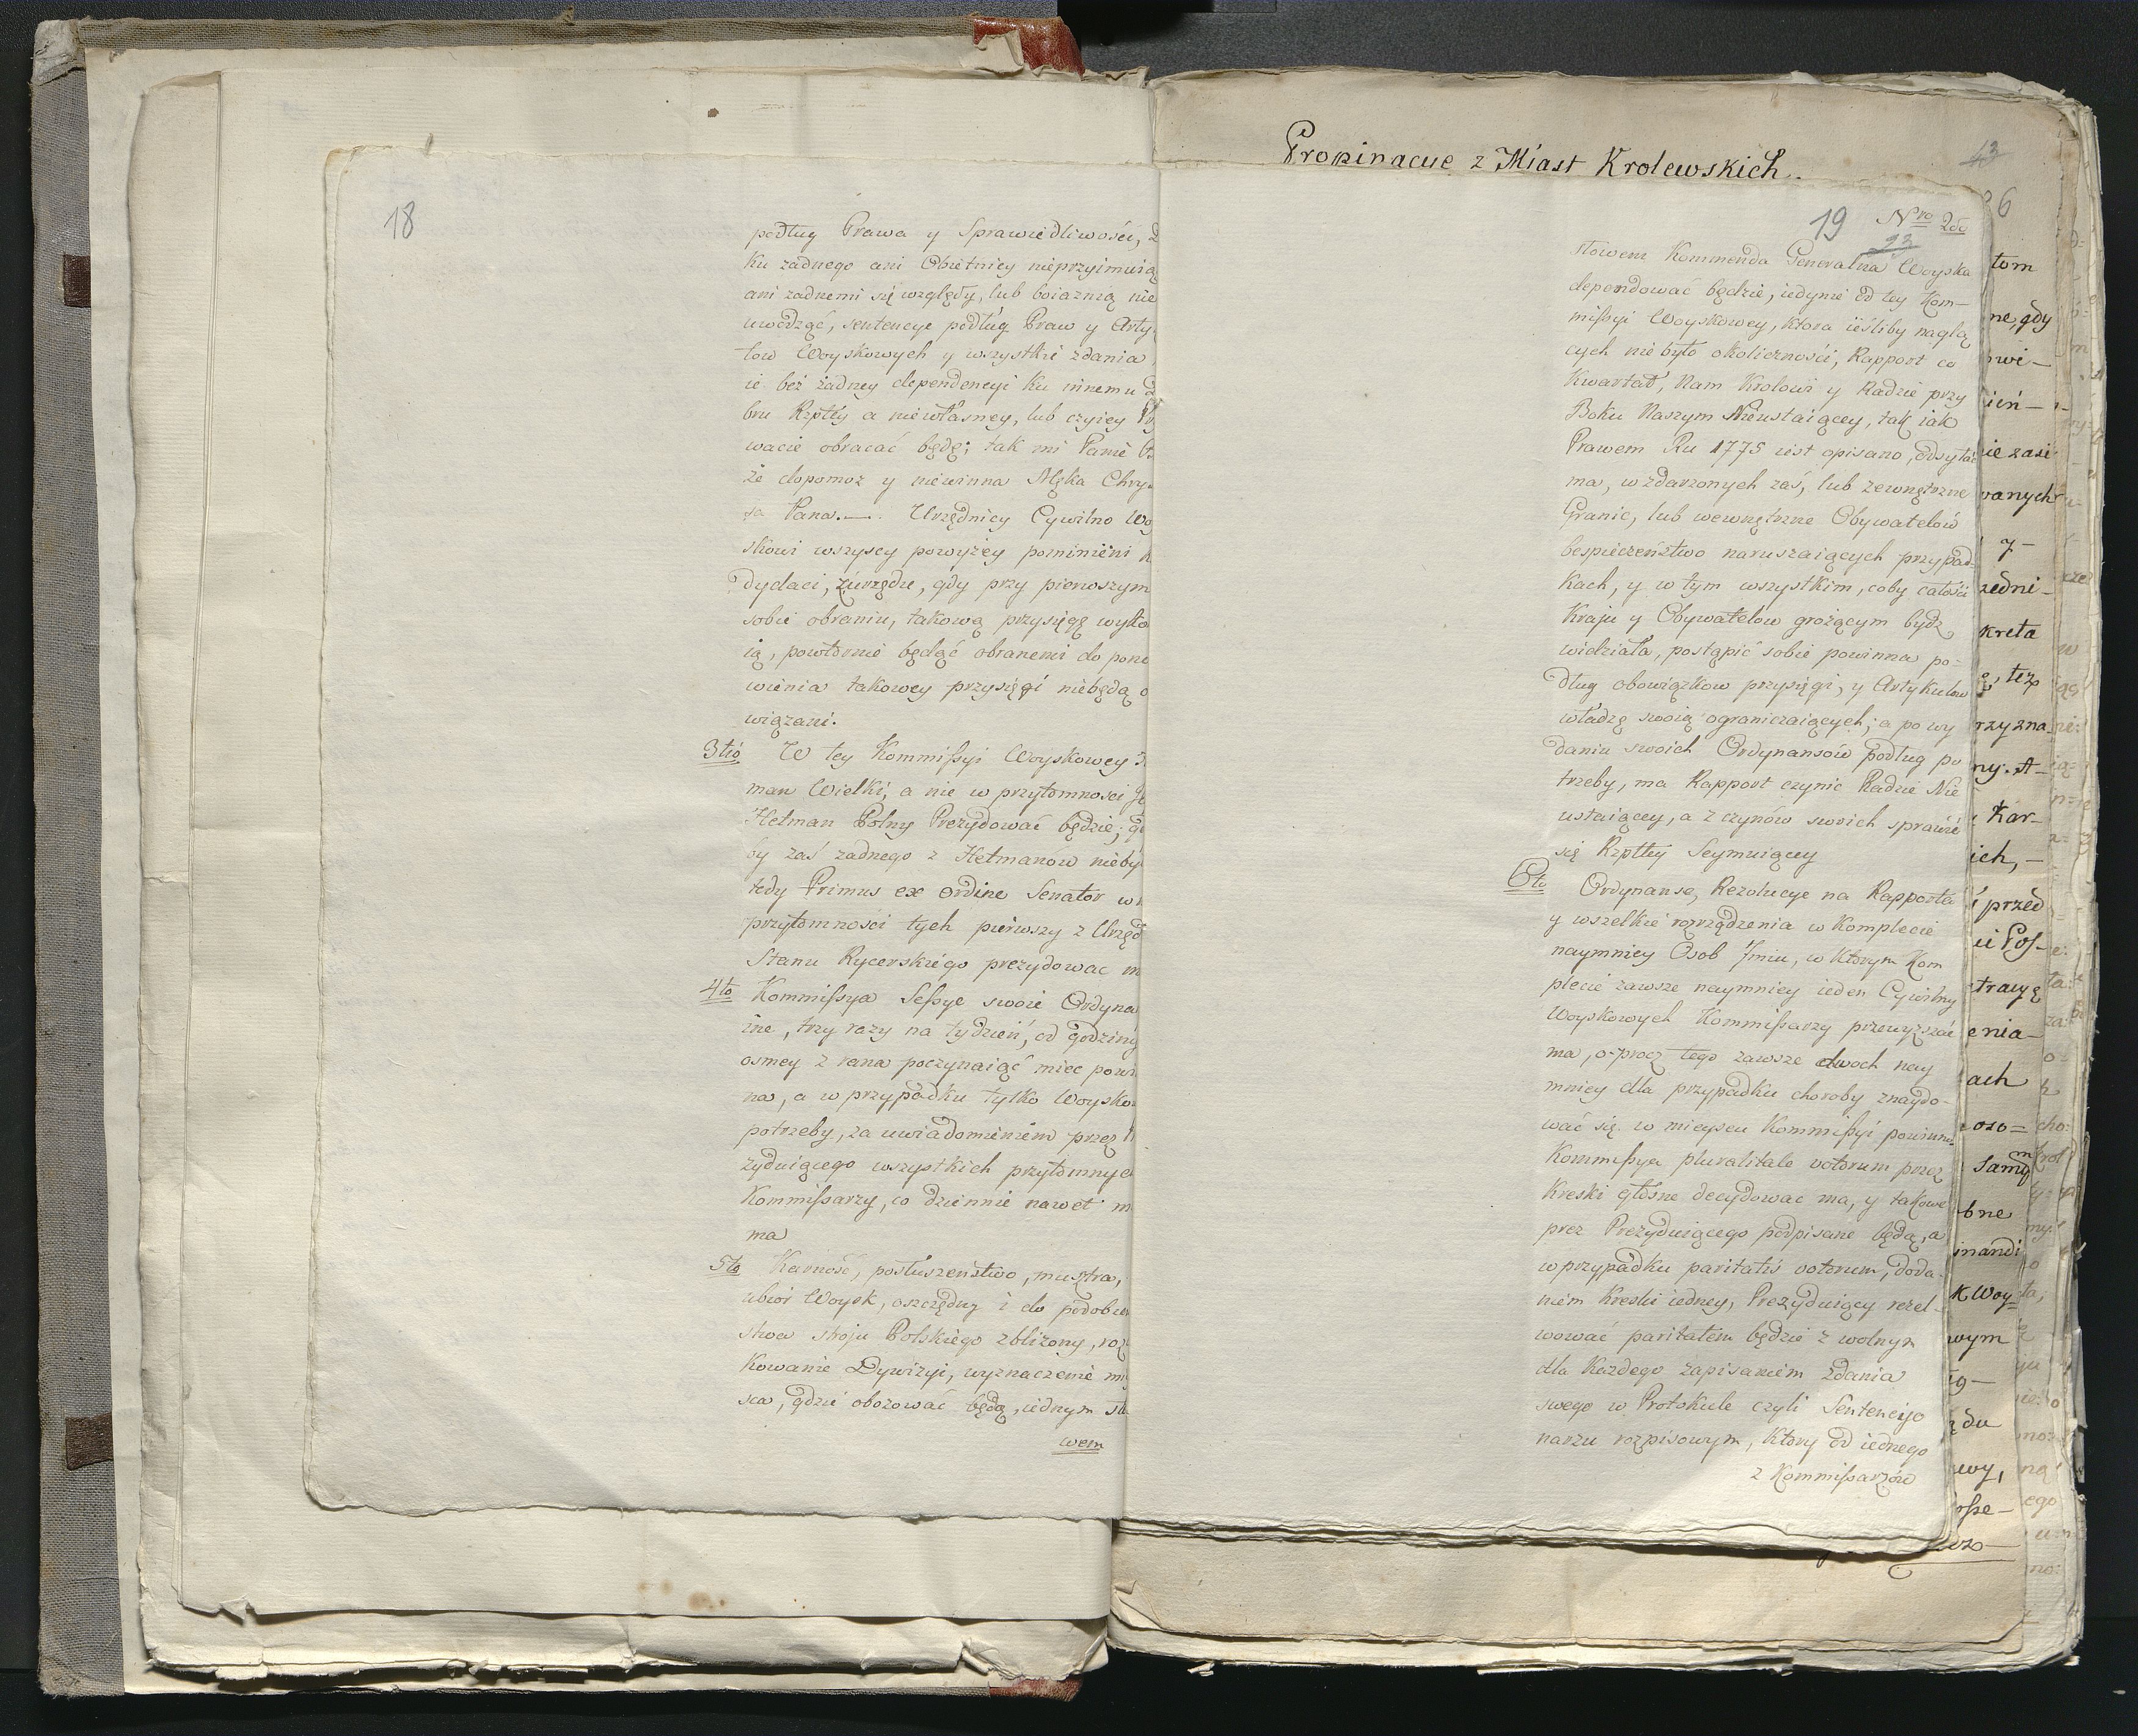 18
podług Prawa y Sprawiedliwości,
ku żadnego ani Obietnicy nieprzyimuią
ani żadnemi się względy, lub boiaznią nie
uwodząć, sentencye podług Praw y Arty
łow Woyskowych y wszystkie zdania
ie beż żadney dependencyi ku innemu
bru Rzpltey a niewłasney, lub czyiey
wacie obracać będę; tak mi Panie
że dopomoż y niewinna Męka Chry
sa Pana.—. Urzędnicy Cywilno Wo
skowi wszyscy powyżey pominieni
dydaci, gdy przy pierwszym
sobie obraniu, takową przysięgę wyko
ią, powtornie będąć obranemi do pono
wienia takowey przysięgi niebędą o
wiązani.
3tio W tey Kommissyi Woyskowey
man Wielki, a nie w przytomnosci
Hetman Polny Prezydować będzie; g
by zaś żadnego z Hetmanów nieby
tedy Primus ex ordine Senator w
przytomności tych pierwszy z Urzęd
Stanu Rycerskiego prezydowac m
4to Kommissya Sessye swoie Ordyna
ine, trzy razy na tydzień, od godziny
osmey z rana poczynaiąć miec powi
na, a w przypadku tylko Woysko
potrzeby, za uwiadomieniem przez
zyduiącego wszystkich przytomnyc
Kommissarzy, co dziennie nawet m
ma
5to Karność, posłuszenstwo, musztra,
ubior Woysk, oszczędny i do podobie
stwa stroju Polskiego zbliżony, roz
kowanie Dywizyi, wyznaczenie mi
sca, gdzie obozować będą, iednym sło
wem
Propinacye z Miast Krolewskich.
43
26
19 Nro 20
23
słowem Kommenda Generalna Woyska
dependować będzie, iedynie od tey Kom—
missyi Woyskowey, ktora ieśliby naglą
cych niebyło okoliczności, Rapport co
Kwartał, Nam Krolowi y Radzie przy
Boku Naszym Nieustaiącey, tak iak
Prawem Ru 1775 iest opisano, odsyłać
ma, w zdarzonych zaś, lub zewnętrzne
Granic, lub wewnętrzne Obywatelow
bespieczeństwo naruszaiących przypad=
kach, y w tym wszystkim, coby całości
Kraju y Obywatelow grożącym bydz
widziała, postąpić sobie powinna po=
dług obowiązkow przysięgi, y Artykułow
władzę swoią ograniczaiących; a po wy
daniu swoich Ordynansów podług po
trzeby, ma Rapport czynic Radzie Nie
ustaiącey, a z czynów swoich sprawić
się Rzpltey Seymuiącey
6to Ordynanse, Rezolucye na Rapporta
y wszelkie rozrządzenia w Komplecie
naymniey Osob 7miu, w ktorym Kom
plecie zawsze naymniey ieden Cywilny
Woyskowych Kommissarzy przewyższać
ma, o-procz tego zawsze dwoch nay
mniey dla przypadku choroby znaydo-
wać się w mieyscu Kommissyi powinno
Kommissya pluralitate votorum przez
Kreski głosne decydowac ma, y takowe
prez Prezyduiącego podpisane będą, a
w przypadku paritatis votorum, doda-
niem Kreski iedney, Prezyduiący rezol-
wować paritatem będzie z wolnym
dla każdego zapisaniem zdania
swego w Protokule czyli Sentencyo
narzu rozpisowym, ktory od iednego
z Kommissarzów
tom
ne, gdy
wi—
ień—
ie zasi
wanych
y—
zedni—
kreta
też
rzyzna
ny. A—
Kar—
ich,—
przed
ci Pos—
trawę
enia—
ach
oso=
samy
bne
inandi
k Woy
wym
ig—
du
wy,